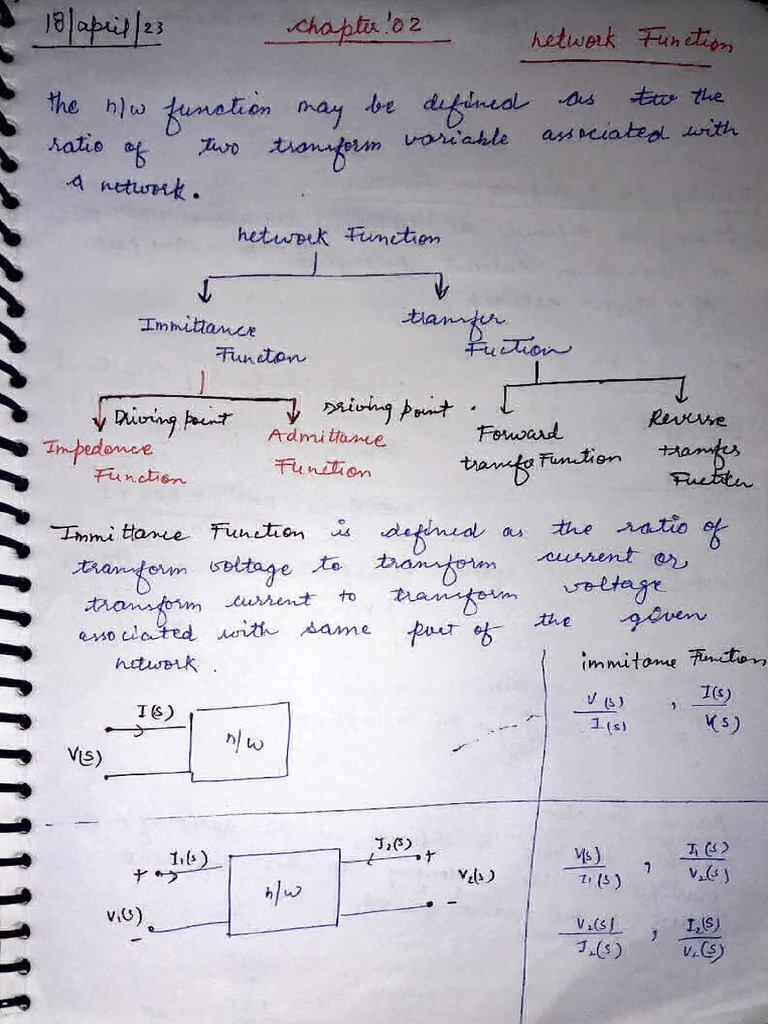 18/april/23
chapter '02
network Function
the n/w function may be defined as the
ratio of two transform variable associated with
a network.
network Function
Immittance
Functon
transfer
Fuction
Driving point
Impedance
Function
Driving point .
Admittance
Function
Forward
transfe Function
Reverse
transfer
Immittance Function is defined as the ratio of
transform voltage to transform current or
transform current to transform voltage
associated with same port of the given
network .
immitame Function
V(s)/I(s) , I(s)/V(s)
I(s)
V(s)
n/w
I₁(s)
I₂(s)
+
+
n/w
V₁(s)
V₂(s)
-
-
V(s)/I₁(s) , I₁(s)/V₂(s)
V₂(s)/I₂(s) , I₂(s)/V₂(s)